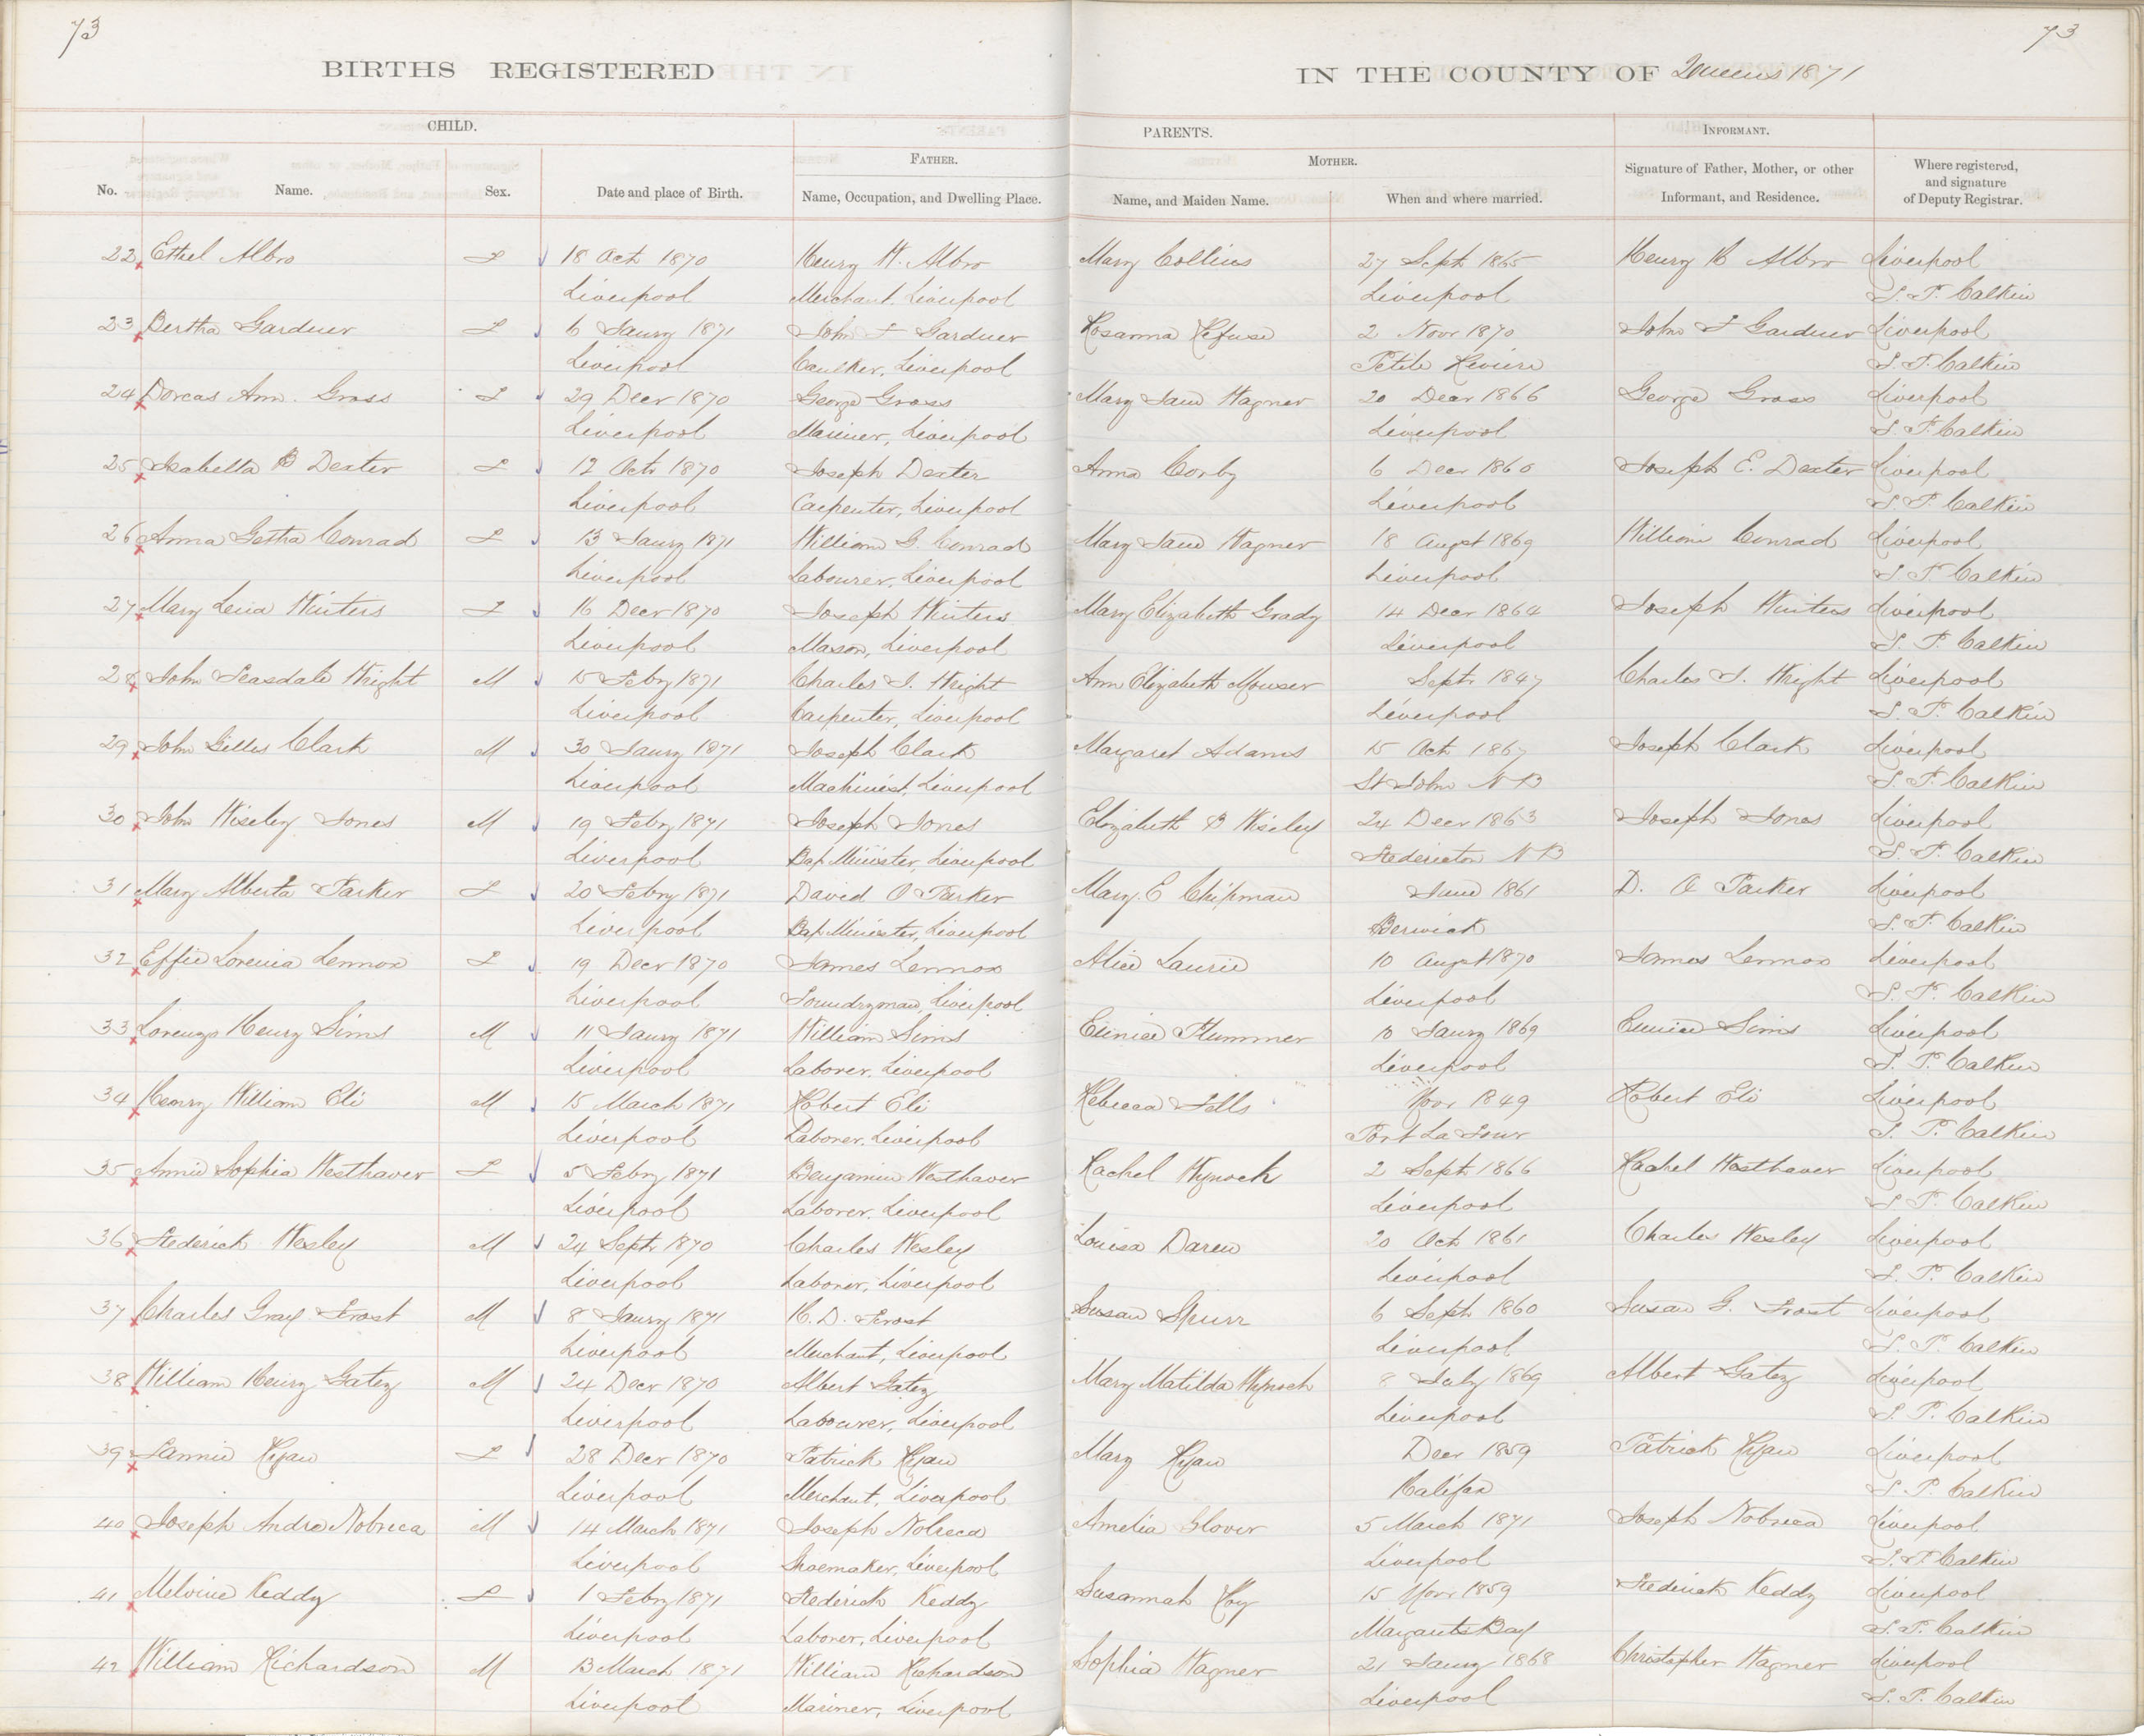 73 73
BIRTHS REGISTERED IN THE COUNTY OF Queens 1871
CHILD. PARENTS. INFORMANT.
FATHER. MOTHER.
No. Name. Sex. Date and place of Birth. Name, Occupation, and Dwelling Place. Name, and Maiden Name. When and where married. Signature of Father, Mother, or other Informant, and Residence. Where registered, and signature of Deputy Registrar.
22 Ethel Albro F 18 Oct 1870 Henry H. Albro Mary Collins 27 Sept 1865 Henry H Albro Liverpool
Liverpool Merchant, Liverpool Liverpool S. P. Calkin
23 Bertha Gardner F 6 Jany 1871 John F Gardner Rosanna Refuse 2 Novr 1870 John F Gardner Liverpool
Liverpool Caulker, Liverpool Petite Riviere S. P. Calkin
24 Dorcas Ann. Gross F 29 Decr 1870 George Gross Mary Jane Wagner 20 Decr 1866 George Gross Liverpool
Liverpool Mariner, Liverpool Liverpool S. P. Calkin
25 Isabella B Dexter F 12 Octr 1870 Joseph Dexter Anna Corby 6 Decr 1860 Joseph E. Dexter Liverpool
Liverpool Carpenter, Liverpool Liverpool S. P. Calkin
26 Anna Getha Conrad F 13 Jany 1871 William G. Conrad Mary Jane Wagner 18 Augst 1869 William Conrad Liverpool
Liverpool Labourer, Liverpool Liverpool S. P. Calkin
27 Mary Lena Winters F 16 Decr 1870 Joseph Winters Mary Elizabeth Grady 14 Decr 1864 Joseph Winters Liverpool
Liverpool Mason, Liverpool Liverpool S. P. Calkin
28 John Teasdale Wright M 15 Febry 1871 Charles I. Wright Ann Elizabeth Mouser Septr 1847 Charles I. Wright Liverpool
Liverpool Carpenter, Liverpool Liverpool S. P. Calkin
29 John Gilles Clark M 30 Jany 1871 Joseph Clark Margaret Adams 15 Oct 1867 Joseph Clark Liverpool
Liverpool Machinist, Liverpool St John N B S. P. Calkin
30 John Wiseley Jones M 19 Febry 1871 Joseph Jones Elizabeth B Wiseley 24 Decr 1863 Joseph Jones Liverpool
Liverpool Bap Minister, Liverpool Fredericton N B S. P. Calkin
31 Mary Alberta Parker F 20 Febry 1871 David O Parker Mary E Chipman June 1861 D. O Parker Liverpool
Liverpool Bap Minister, Liverpool Berwick S. P. Calkin
32 Effie Lorenia Lennox F 19 Decr 1870 James Lennox Alice Laurie 10 Augst 1870 James Lennox Liverpool
Liverpool Foundryman, Liverpool Liverpool S. P. Calkin
33 Lorenzo Henry Sims M 11 Jany 1871 William Sims Eunice Plummer 10 Jany 1869 Eunice Sims Liverpool
Liverpool Laborer, Liverpool Liverpool S. P. Calkin
34 Henry William Eli M 15 March 1871 Robert Eli Rebecca Fells Novr 1849 Robert Eli Liverpool
Liverpool Laborer, Liverpool Port La Tour S. P. Calkin
35 Annie Sophia Westhaver F 5 Febry 1871 Benjamin Westhaver Rachel Wynock 2 Sept 1866 Rachel Westhaver Liverpool
Liverpool Laborer, Liverpool Liverpool S. P. Calkin
36 Frederick Wesley M 24 Septr 1870 Charles Wesley Louisa Daren 20 Oct 1861 Charles Wesley Liverpool
Liverpool Laborer, Liverpool Liverpool S. P. Calkin
37 Charles Gray Frost M 8 Jany 1871 H. D. Frost Susan Spurr 6 Septr 1860 Susan G. Frost Liverpool
Liverpool Merchant, Liverpool Liverpool S. P. Calkin
38 William Henry Gatez M 24 Decr 1870 Albert Gatez Mary Matilda Wynock 8 July 1869 Albert Gatez Liverpool
Liverpool Labourer, Liverpool Liverpool S. P. Calkin
39 Fannie Ryan F 28 Decr 1870 Patrick Ryan Mary Ryan Decr 1859 Patrick Ryan Liverpool
Liverpool Merchant, Liverpool Halifax S. P. Calkin
40 Joseph Andre Nobreca M 14 March 1871 Joseph Nobreca Amelia Glover 5 March 1871 Joseph Nobreca Liverpool
Liverpool Shoemaker, Liverpool Liverpool S. P. Calkin
41 Melvine Keddy F 1 Febry 1871 Frederick Keddy Susannah Hoy 15 Novr 1859 Frederick Keddy Liverpool
Liverpool Laborer, Liverpool Margarets Bay S. P. Calkin
42 William Richardson M 13 March 1871 William Richardson Sophia Wagner 21 Jany 1868 Christopher Wagner Liverpool
Liverpool Mariner, Liverpool Liverpool S. P. Calkin